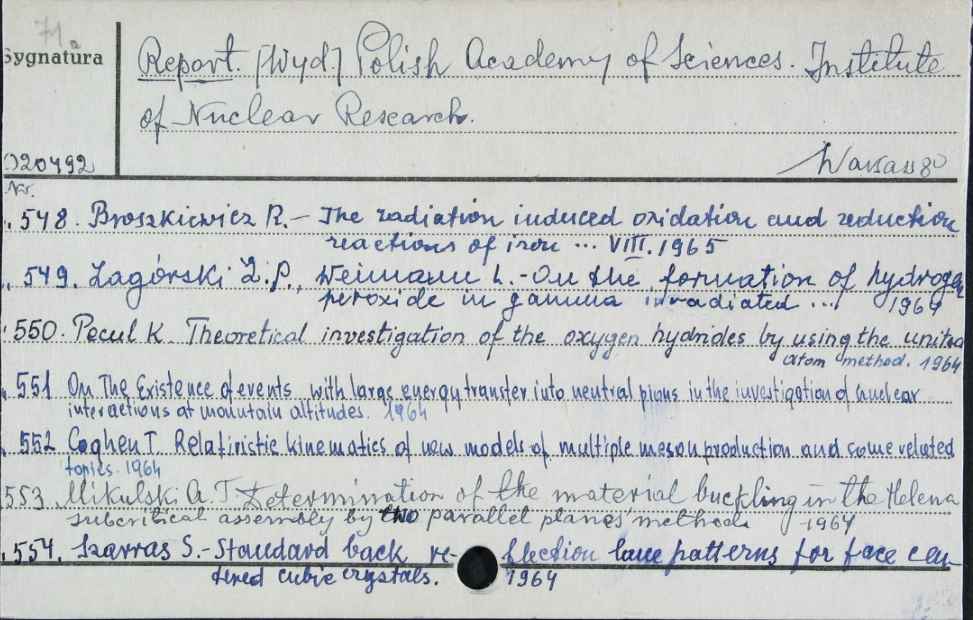 71a
Sygnatura
Report. [Wyd.] Polish Academy of Sciences. Institute
of Nuclear Research.
020492
Warsaw 8°
Nr.
548. Broszkiewicz R. - The radiation induced oxidation and reduction
reactions of iron ... VIII. 1965
549. Zagórski Z.P., Weimann L. - On the formation of hydrogen
peroxide in gamma irradiated ... 1964
550. Pecul K. Theoretical investigation of the oxygen hydrides by using the united
atom method. 1964
551 On The Existence of events with large energy transfer into neutral pions in the investigation of nuclear
interactions at mountain altitudes. 1964
552 Coghen T. Relativistic kinematics of new models of multiple meson production and some related
topics. 1964
553. Mikulski A. T. Determination of the material buckling in the Helena
subcritical assembly by two parallel planes' method. 1964
554. Szarras S. - Standard back re- flection laue patterns for face cen-
tered cubic crystals. 1964